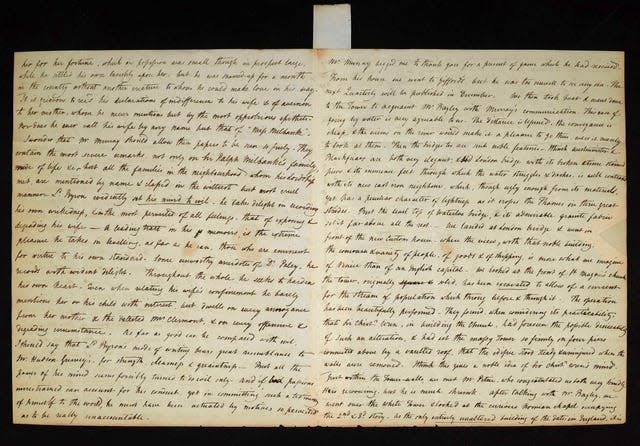 her for her fortune, which in possession was small though in prospect large,
while he settled his own lavishly upon her, but he was mewed up for a month
in the country without another creature to whom he could make love in his way.
It is odious to read his declarations of indifference to his wife & of aversion
to her mother, whom he never mentions but by the most opprobrious epithets.
Nor does he ever call his wife by any name but that of "Miss Milbanke".
I wonder that Mr Murray should allow these papers to be seen so freely. They
contain the most severe remarks not only on Sir Ralph Milbanke's family,
mode of life &c, but all the families in the neighbourhood whom his lordship
met, are mentioned by name & classed in the wittiest but most cruel
manner. Ld Byron evidently at his mind is evil. he takes delight in recording
his own wickedness, & in the most perverted of all feelings, that of exposing &
degrading his wife — A leading trait in his memoirs is the extreme
pleasure he takes in levelling, as far as he can, those who are eminent
for virtue to his own standard. Some unworthy anecdote of Dr Paley, he
records with evident delight. Throughout the whole he seeks to harden
his own heart. Even when relating his wife's confinement he barely
mentions her or his child with interest but dwells on every arrogance
from her mother & the detested Mrs Clermont, & on every offensive &
degrading circumstance. As far as good can be compared with evil
I should say that Ld Byron's mode of writing bears great resemblance to
Mr Hudson Gurney's, for strength clearness & quaintness — But all the
power of his mind seems forcibly turned to evil only. And if bad passions
unrestrained can account for his conduct, yet in committing such a picture
of himself to the world he must have been actuated by motives so perverted
as to be really unaccountable.
Mr Murray begged me to thank you for a present of game which he had received.
From his house we went to Giffords, but he was too unwell to see any one. The
next Quarterly will be published in December. We then took boat & went down
to the Tower to acquaint Mr Bayley with Murray's communication. This mode of
going by water is very agreeable here. The distance is depened, the conveyance is
cheap, & the views on the river would make it a pleasure to go there were it merely
to look at them. Then the bridges are such noble features. I think Westminster &
Blackfriars are both very elegant, & old London bridge with its broken & time stained
piers & its numerous feet through which the water struggles & darkens, is well contrasted
with its new cast iron neighbour which, though ugly enough from its material,
yet has a peculiar character of lightness as it crosses the Thames in three great
strides. But the level top of Waterloo bridge, & its admirable granite fabric
set it far above all the rest. We landed at London bridge & went in
front of the new Custom house where the river, with that noble building,
the commerce & variety of people, of goods & of shipping, is more what we imagine
of Venice than of an English capital. We looked at the front of St Magnus church
the tower, originally square & solid, has been excavated to allow of a convenient
for the stream of population which throng before & through it. The operation
has been beautifully performed. They found when considering its practicability
that Sir Christr Wren, in building the Church, had foreseen the possible desirability
of such an alteration, & had set the massy tower so firmly on four piers
connected above by a vaulted roof, that the edifice stood steady & uninjured when the
walls were removed. I think this gives a noble idea of Sir Christr Wren's mind.
Just within the Tower-walls we met Mr Petrie, who congratulated us both very kindly.
He is recovering, but he is much shrunk. After talking with Mr Bayley, we
went over the white Tower, looked at the curious Norman chapel occupying
the 2nd & 3d story. As the only entirely unaltered building of the date in England, it is